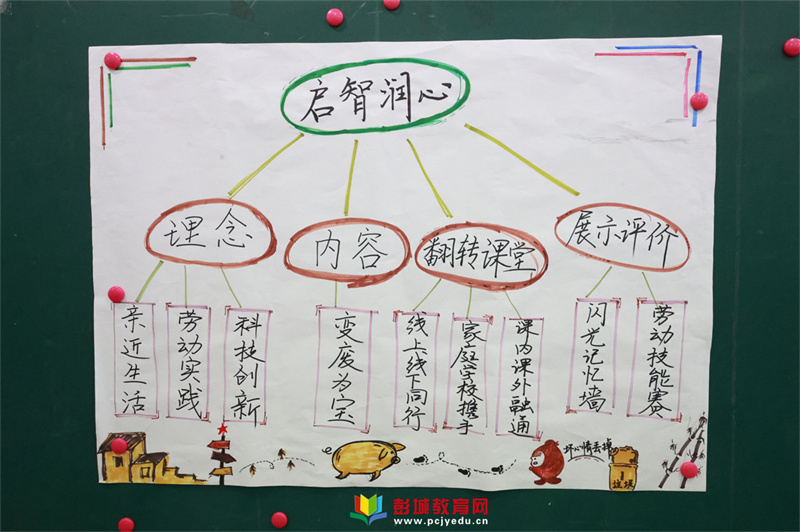 启智润心
理念
内容
翻转课堂
展示评价
亲近生活
劳动实践
科技创新
变废为宝
线上线下同行
家庭学校携手
课内课外融通
闪光记忆墙
劳动技能赛
坏心情丢掉
垃圾
彭城教育网
www.pcjyedu.cn